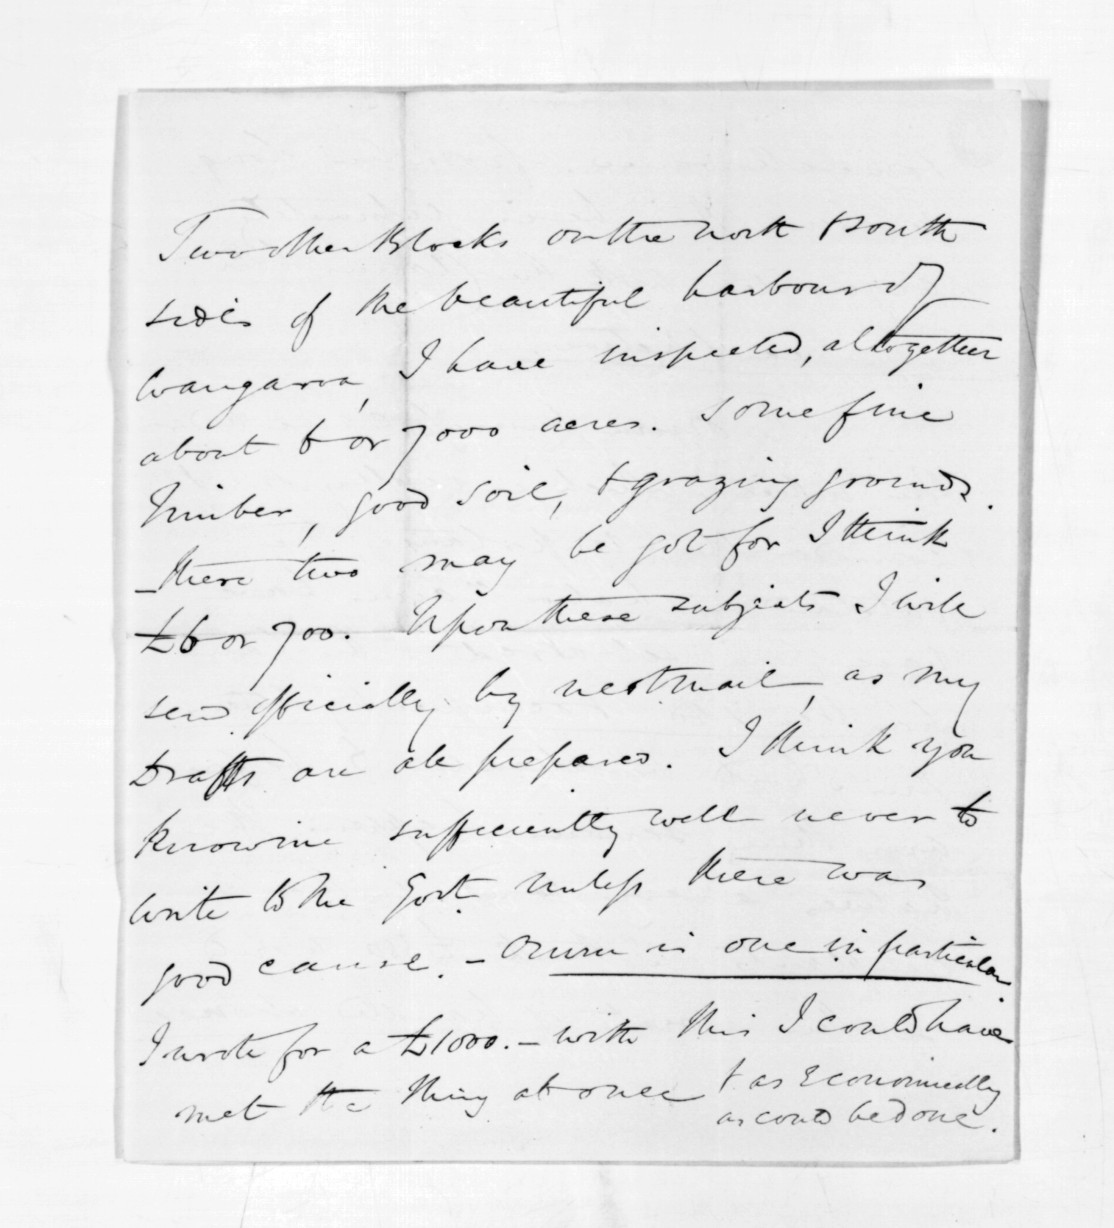 Two other Blocks on the north & south
sides of the beautiful harbour of
Wangaroa, I have inspected, altogether
about 6 or 7000 acres. Some fine
Timber, good soil, & grazing grounds.
_ these two may be got for I think
£6 or 700. Upon these subjects I will
send officially by next mail, as my
Drafts are all prepared. I think you
know me sufficiently well never to
write to the Govt. unless there was
good cause. - Oruru is one in particular.
I wrote for a £1000. - with this I could have
met the thing at once & as Economically
as could be done.